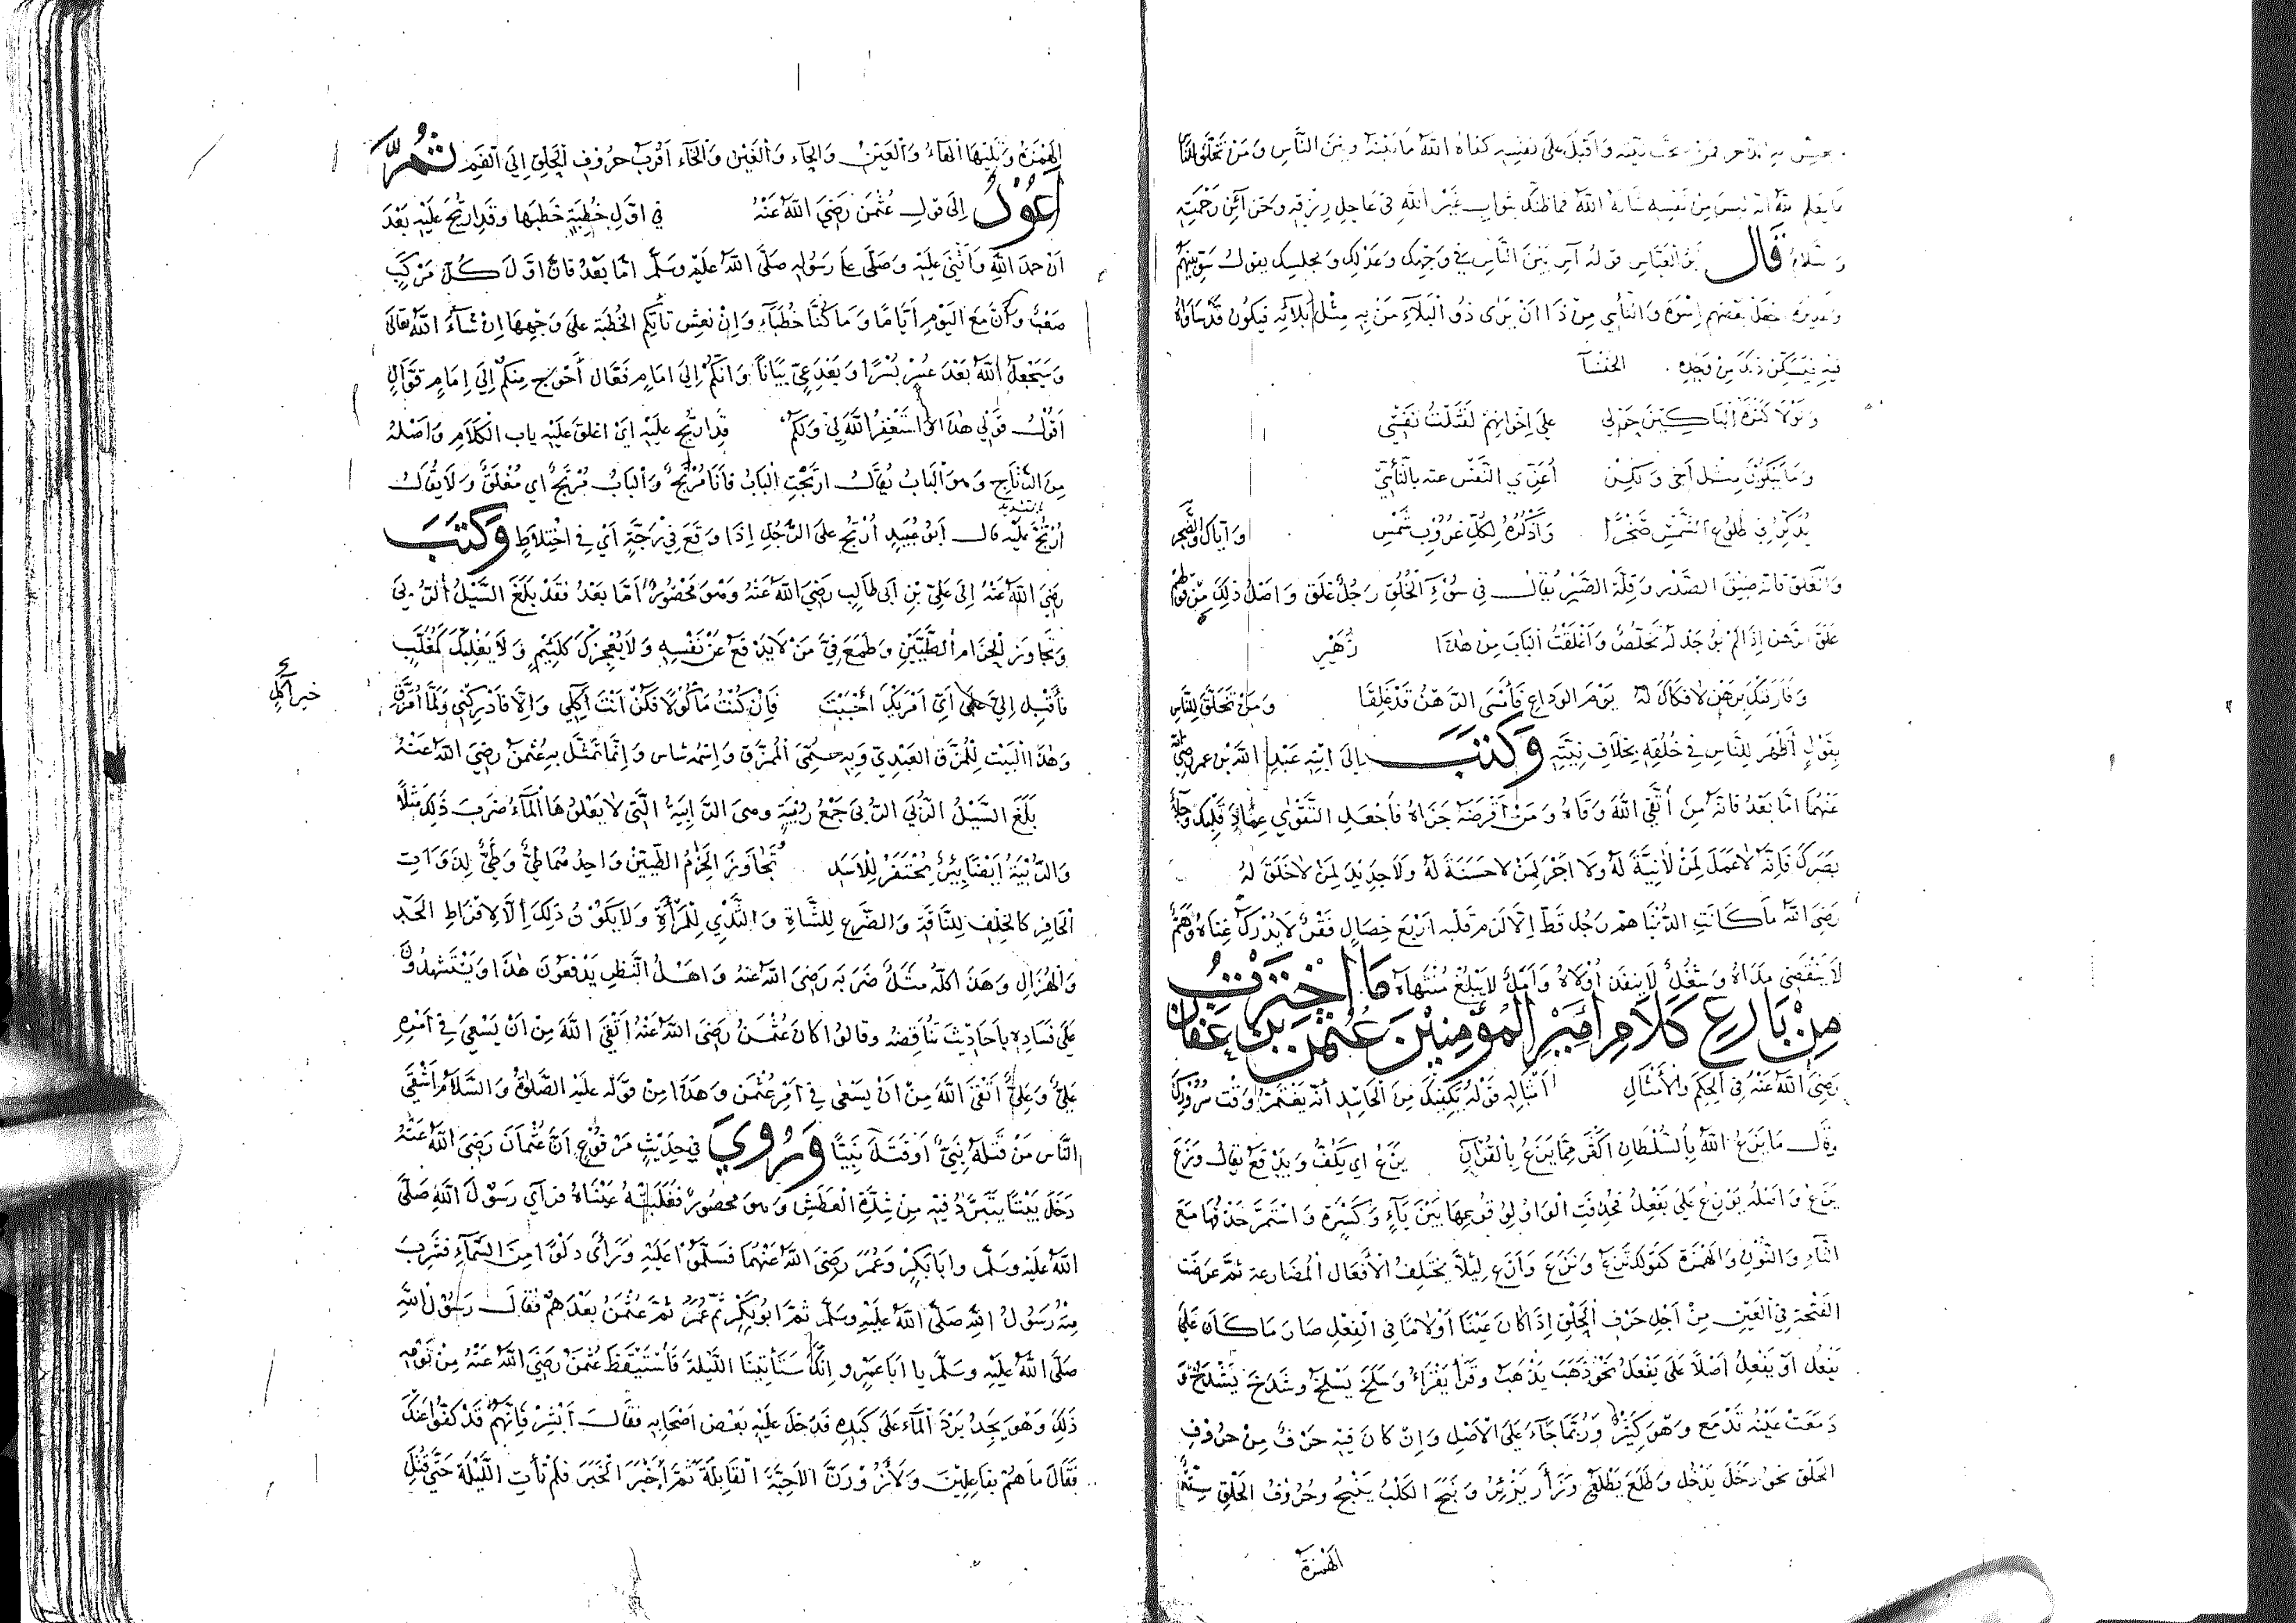 نيته واقبل على نفسه كفاه الله ما بينه وبين الناس ومن تخلق للناس
ما يعلم الله انه ليس من نفسه شانه الله فما ظنك بثواب غير الله في عاجل رزقه وخزائن رحمته
والسلام قال ابو العباس قوله آس بين الناس في وجهك وعدلك ومجلسك يقول سو بينهم
بعضهم اسوة والتأسي من ذا ان يرى ذو البلاء من به مثل بلائه فيكون قد ساواه
فيه فيسكن ذلك من وجده الخنساء
ولولا كثرة الباكين حولي على اخوانهم لقتلت نفسي
وما يبكون مثل أخي ولكن أعزي النفس عنه بالتأسي
يذكرني طلوع الشمس صخرا وأذكره لكل غروب شمس واياك والضجر
والغلق فانه ضيق الصدر وقلة الصبر يقال في سوء الخلق رجل غلق واصل ذلك من قولهم
غلق الرهن اذا لم يوجد له تخلص واغلقت الباب من هذا زهير
وفارقتك برهن لا فكاك له يوم الوداع فأمسى الرهن قد غلقا ومن تخلق للناس
بقول أظهر للناس في خلقه بخلاف نيته وكتب إلى ابنه عبد الله بن عمر رضي الله
عنهما اما بعد فانه من اتقى الله وقاه ومن أقرضه جزاه فاجعل التقوى عماد قلبك وجلاء
بصرك فانه لا عمل لمن لا نية له ولا اجر لمن لا حسنة له ولا جديد لمن لا خلق له
رضي الله ما كانت الدنيا هم رجل قط الا لزم قلبه اربع خصال فقر لا يدرك غناه وهم
لا ينقضي مداه وشغل لا ينفد أولاه وأمل لا يبلغ منتهاه ما اخترت
من بارع كلام أمير المؤمنين عثمن بن عفان
رضي الله عنه في الحكم والأمثال امثاله قوله يكفيك من الحاسد أنه يغتم وقت سرورك
وقال ما يزع الله بالسلطان اكثر مما يزع بالقرآن يزع اي يكف ويدفع يقال وزع
يزع واصله يوزع على يفعل فحذفت الواو لوقوعها بين ياء وكسرة واستمر حذفها مع
التاء والنون والهمزة كقولك تزع ونزع وأزع لئلا يختلف الأفعال المضارعة ثم عرضت
الفتحة في العين من اجل حرف الحلق اذا كان عينا أو لاما في الفعل صار ما كان على
يفعل او يفعل اصلا على يفعل نحو ذهب يذهب وقرأ يقرأ وسلخ يسلخ وشدخ يشدخ و
دمعت عينه تدمع وهو كثير وربما جاء على الاصل وان كان فيه حرف من حروف
الحلق نحو دخل يدخل وطلع يطلع وزأر يزئر ونبح الكلب ينبح وحروف الحلق ستة
الهمزة
الهمزة ويليها الهاء والعين والحاء والغين والخاء اقرب حروف الحلق إلى الفم ثم
أعود إلى قول عثمن رضي الله عنه في اول خطبة خطبها وقد ارتج عليه بعد
ان حمد الله واثنى عليه وصلى على رسوله صلى الله عليه وسلم اما بعد فان اول كل مركب
صعب وان مع اليوم أياما وما كنا خطباء وان نعش تأتكم الخطبة على وجهها ان شاء الله تعالى
وسيجعل الله بعد عسر يسرا وبعد عي بيانا وانكم إلى امام فعال أحوج منكم إلى امام قوال
اقول قولي هذا واستغفر الله لي ولكم قد ارتج عليه اي اغلق عليه باب الكلام واصله
من الرتاج وهو الباب يقال ارتجت الباب فأنا مرتج والباب مرتج اي مغلق ولا يقال
بالتشديد
ارتج عليه قال ابو عبيد ارتج على الرجل اذا وقع في رجة اي في اختلاط وكتب
رضي الله عنه إلى علي بن ابي طالب رضي الله عنه وهو محصور اما بعد فقد بلغ السيل الزبى
وتجاوز الحزام الطبيين وطمع في من لا يدفع عن نفسه ولا يعجزك كلئيم ولا يغلبك كمغلب
فأقبل إلي على أي أمريك أحببت فان كنت مأكولا فكن انت آكلي وإلا فادركني ولما أمزق
خير آكل
وهذا البيت للممزق العبدي وبه سمي الممزق واسمه شاس وانما تمثل به عثمن رضي الله عنه
بلغ السيل الزبى الزبى جمع زبية وهي الرابية التي لا يعلوها الماء ضرب ذلك مثلا
والزبية ايضا بئر يحتفر للاسد تجاوز الحزام الطبيين واحدهما طبي وطبي لذوات
الحافر كالخلف للناقة والضرع للشاة والثدي للمرأة ولا يكون ذلك إلا لافراط الحد
والهزال وهذا كله مثل ضربه رضي الله عنه واهل النظر يدفعون هذا ويستشهدون
على فساده باحاديث تناقضه وقالوا كان عثمن رضي الله عنه اتقى الله من ان يسعى في امره
علي وعلي اتقى الله من ان يسعى في امر عثمن وهذا من قوله عليه الصلوة والسلام اشقى
الناس من قتله نبي او قتل نبيا وروي في حديث مرفوع ان عثمان رضي الله عنه
دخل بيتا يتبرد فيه من شدة العطش وهو محصور فغلبته عيناه فرأى رسول الله صلى
الله عليه وسلم وابا بكر وعمر رضي الله عنهما فسلموا عليه ورأى دلوا من السماء فشرب
منه رسول الله صلى الله عليه وسلم ثم ابو بكر ثم عمر ثم عثمن بعدهم فقال رسول الله
صلى الله عليه وسلم يا ابا عمرو انك ستأتينا الليلة فاستيقظ عثمن رضي الله عنه من نومه
ذلك وهو يجد برد الماء على كبده فدخل عليه بعض اصحابه فقال أبشر فانهم قد كفوا عنك
فقال ما هم بفاعلين ولأزورن الاحبة القابلة ثم أخبر الخبر فلم تأت الليلة حتى قتل